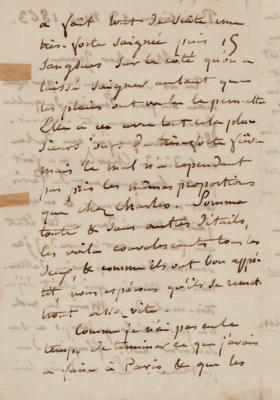 a fait tout de suite une
très forte saignée puis 15
sangsues sur le côté qu'on a
laissé saigner autant que
les plaies ont voulu le permettre
Elle a eu avec tout cela plu
sieurs jours de très forte fièvre
mais le mal n'a cependant
pas pris les mêmes proportions
que chez Charles. Somme
toute & sans autres détails,
les voilà convalescents tous les
deux & comme ils ont bon appé
tit, nous espérons qu'ils se remet
tront assez vite.
Comme je n'ai pas eu le
temps de terminer ce que j'avais
à faire à Paris & que les